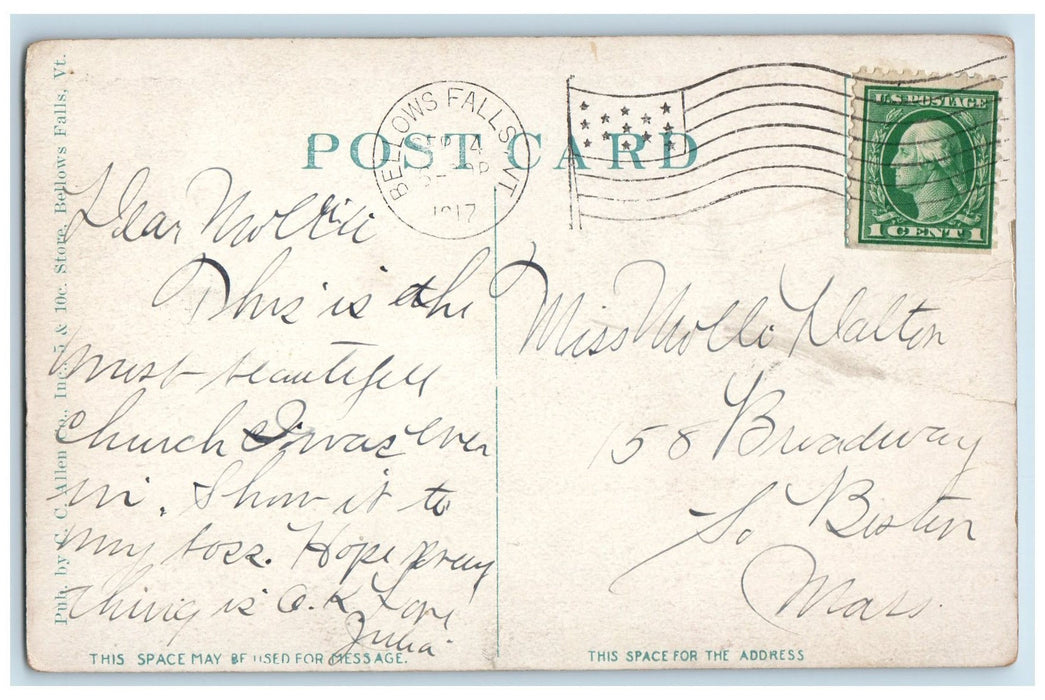 POST CARD
BELLOWS FALLS, VT.
1917
U.S. POSTAGE
1 CENT 1
Pub. by C. C. Allen Co., Inc. 5 & 10c. Store, Bellows Falls, Vt.
Dear Mollie
This is the
most beautifull
Church I was ever
in. Show it to
my boss. Hope every
thing is O.K. Love
Julia
Miss Molli Dalton
158 Broadway
So Boston
Mass.
THIS SPACE MAY BE USED FOR MESSAGE.
THIS SPACE FOR THE ADDRESS